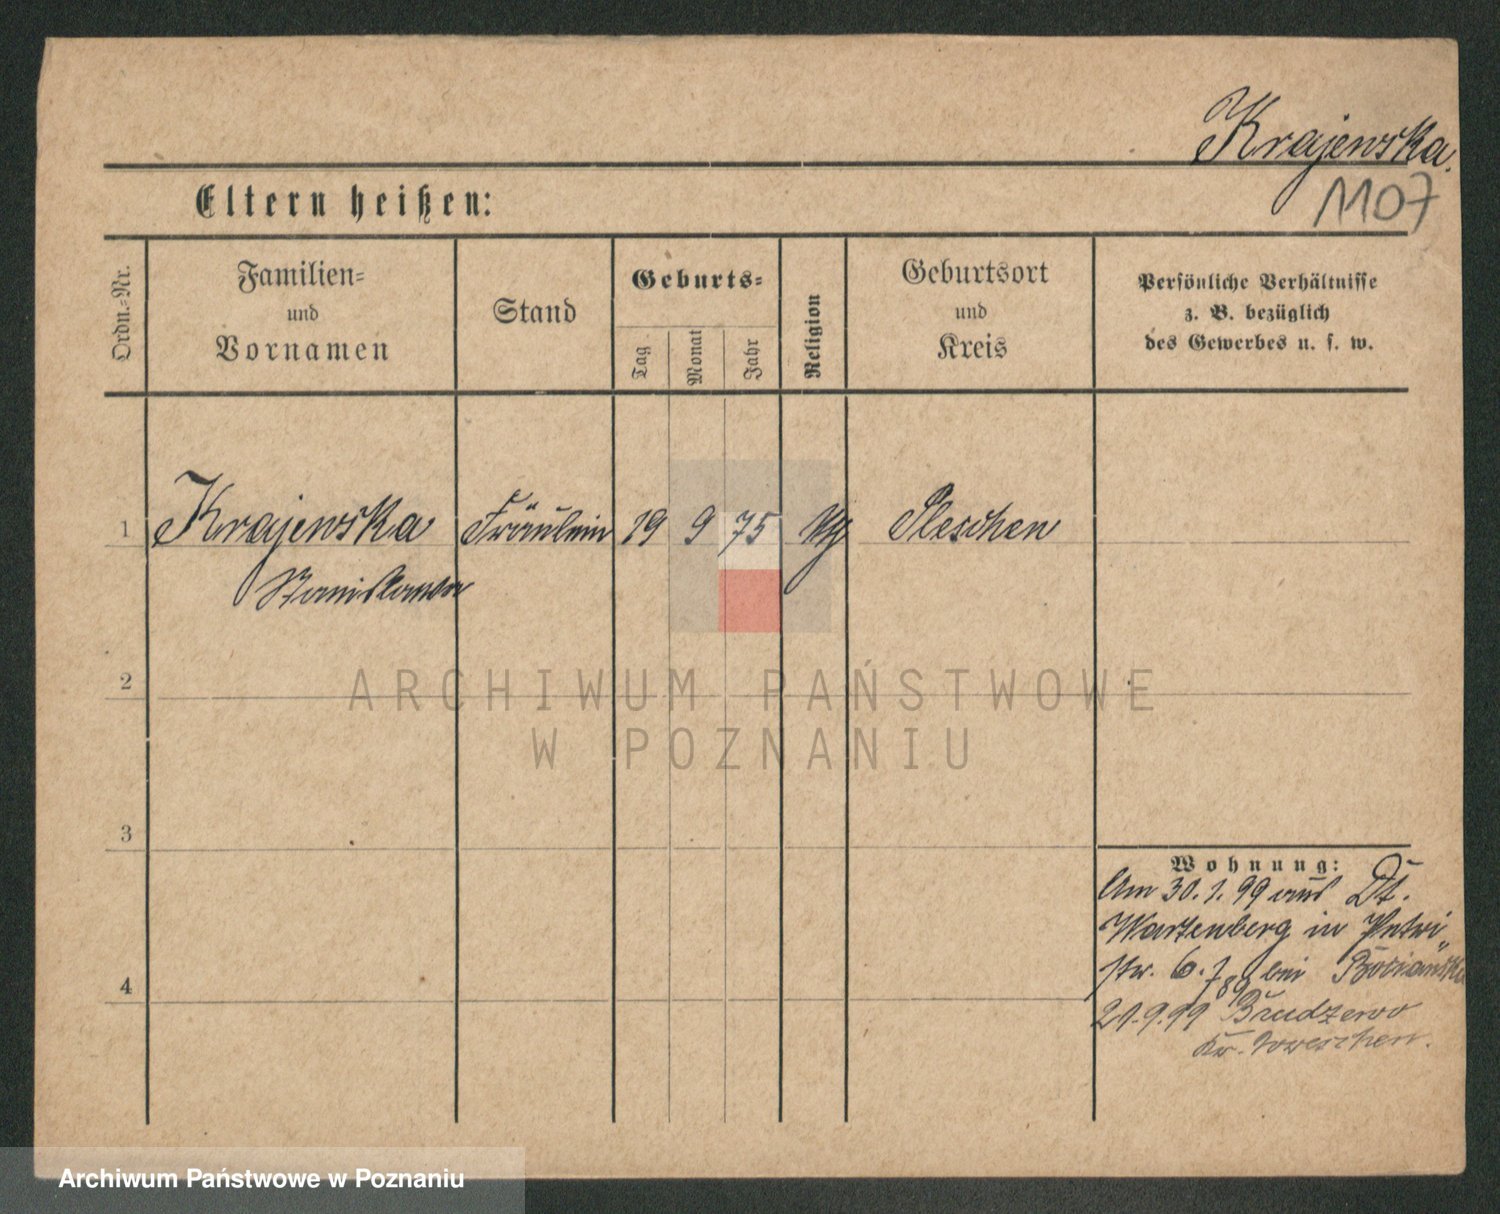 Krajewska.
1107
Eltern heißen:
Ordn.-Nr.
Familien-
und
Vornamen
Stand
Geburts-
Tag
Monat
Jahr
Religion
Geburtsort
und
Kreis
Persönliche Verhältnisse
z. B. bezüglich
des Gewerbes u. s. w.
1 Krajewska Fräulein 19 9 75 Pleschen
Stanislawa
2
ARCHIWUM PAŃSTWOWE
W POZNANIU
3
Wohnung:
Am 30. 1. 99 aus Dt.
Wartenberg in Petri
str. 6. I bei
4
21.9.99 Brudzewo
Kr. Wreschen.
Archiwum Państwowe w Poznaniu